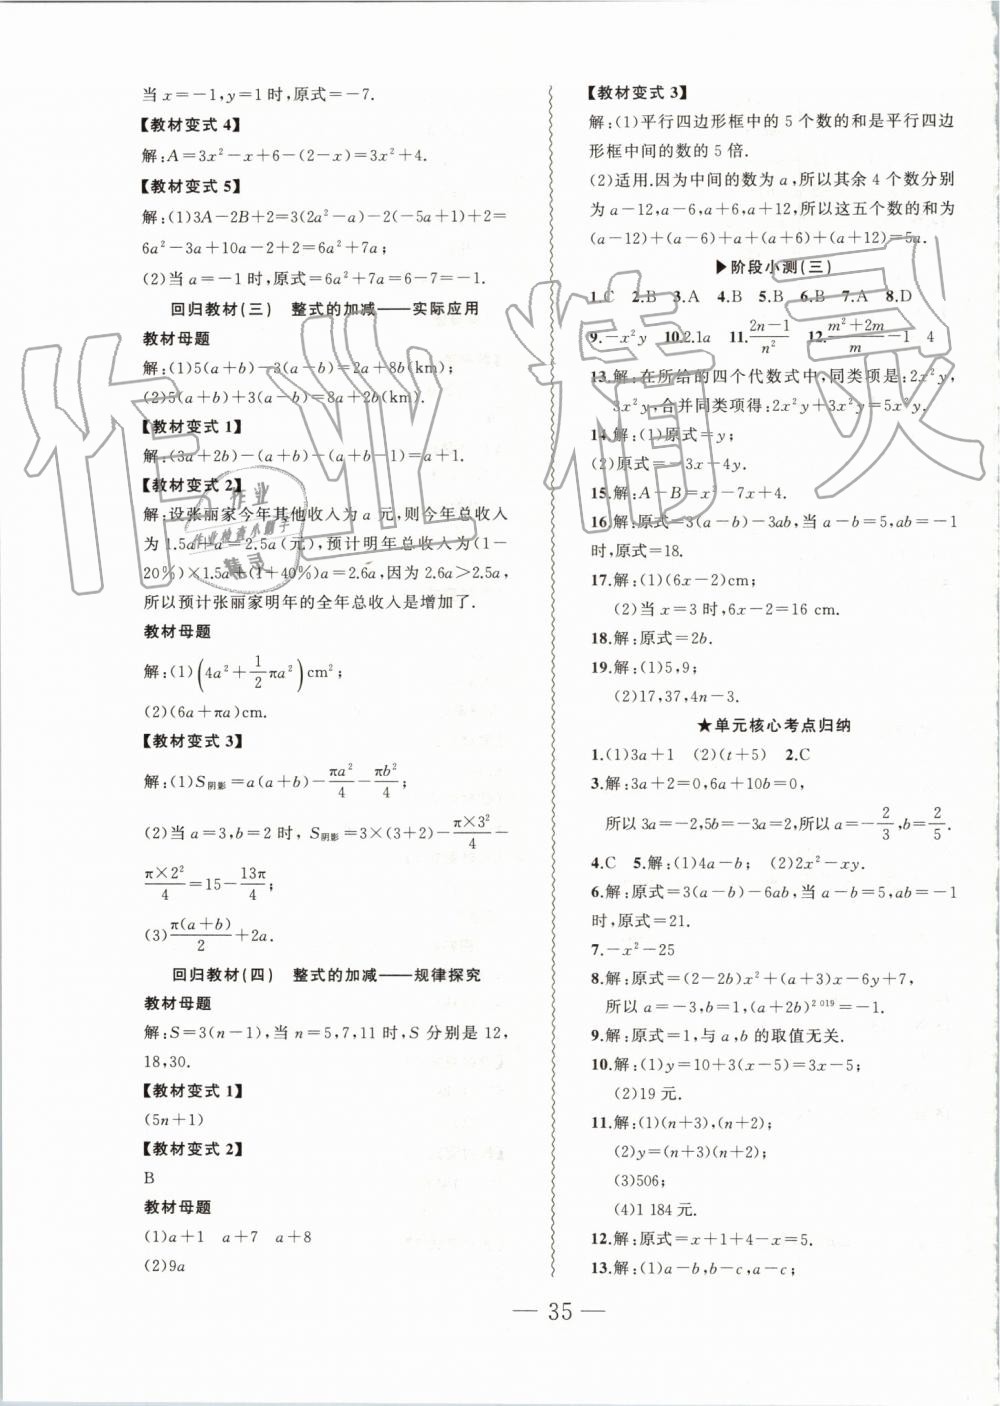 当 x=-1,y=1时,原式=-7.
【教材变式4】
解:A=3x²-x+6-(2-x)=3x²+4.
【教材变式5】
解:(1)3A-2B+2=3(2a²-a)-2(-5a+1)+2=
6a²-3a+10a-2+2=6a²+7a;
(2)当 a=-1时,原式=6a²+7a=6-7=-1.
回归教材(三) 整式的加减——实际应用
教材母题
解:(1)5(a+b)-3(a-b)=2a+8b(km);
(2)5(a+b)+3(a-b)=8a+2b(km).
【教材变式1】
解:(3a+2b)-(a+b)-(a+b-1)=a+1.
【教材变式2】
解:设张丽家今年其他收入为 a 元,则今年总收入
为 1.5a+a=2.5a(元),预计明年总收入为(1-
20%)×1.5a+(1+40%)a=2.6a,因为2.6a>2.5a,
所以预计张丽家明年的全年总收入是增加了.
教材母题
解:(1)(4a²+1/2πa²)cm²;
(2)(6a+πa)cm.
【教材变式3】
解:(1)S阴影=a(a+b)-πa²/4-πb²/4;
(2)当 a=3,b=2 时,S阴影=3×(3+2)-π×3²/4-
π×2²/4=15-13π/4;
(3)π(a+b)/2+2a.
回归教材(四) 整式的加减——规律探究
教材母题
解:S=3(n-1),当 n=5,7,11 时,S 分别是 12,
18,30.
【教材变式1】
(5n+1)
【教材变式2】
B
教材母题
(1)a+1 a+7 a+8
(2)9a
【教材变式3】
解:(1)平行四边形框中的 5 个数的和是平行四边
形框中间的数的 5 倍.
(2)适用.因为中间的数为 a,所以其余 4 个数分别
为 a-12,a-6,a+6,a+12,所以这五个数的和为
(a-12)+(a-6)+a+(a+6)+(a+12)=5a.
▶阶段小测(三)
1.C 2.B 3.A 4.B 5.B 6.B 7.A 8.D
9.-x²y 10.2.1a 11.2n-1/n² 12.m²+2m/m-1 4
13.解:在所给的四个代数式中,同类项是:2x²y,
3x²y,合并同类项得:2x²y+3x²y=5x²y.
14.解:(1)原式=y;
(2)原式=-3x-4y.
15.解:A-B=x²-7x+4.
16.解:原式=3(a-b)-3ab,当 a-b=5,ab=-1
时,原式=18.
17.解:(1)(6x-2)cm;
(2)当 x=3 时,6x-2=16 cm.
18.解:原式=2b.
19.解:(1)5,9;
(2)17,37,4n-3.
★单元核心考点归纳
1.(1)3a+1 (2)(t+5) 2.C
3.解:3a+2=0,6a+10b=0,
所以 3a=-2,5b=-3a=2,所以 a=-2/3,b=2/5.
4.C 5.解:(1)4a-b; (2)2x²-xy.
6.解:原式=3(a-b)-6ab,当 a-b=5,ab=-1
时,原式=21.
7.-x²-25
8.解:原式=(2-2b)x²+(a+3)x-6y+7,
所以 a=-3,b=1,(a+2b)²⁰¹⁹=-1.
9.解:原式=1,与 a,b 的取值无关.
10.解:(1)y=10+3(x-5)=3x-5;
(2)19 元.
11.解:(1)(n+3),(n+2);
(2)y=(n+3)(n+2);
(3)506;
(4)1 184 元.
12.解:原式=x+1+4-x=5.
13.解:(1)a-b,b-c,a-c;
— 35 —
作业精灵
作业
作业检查小帮手
精灵